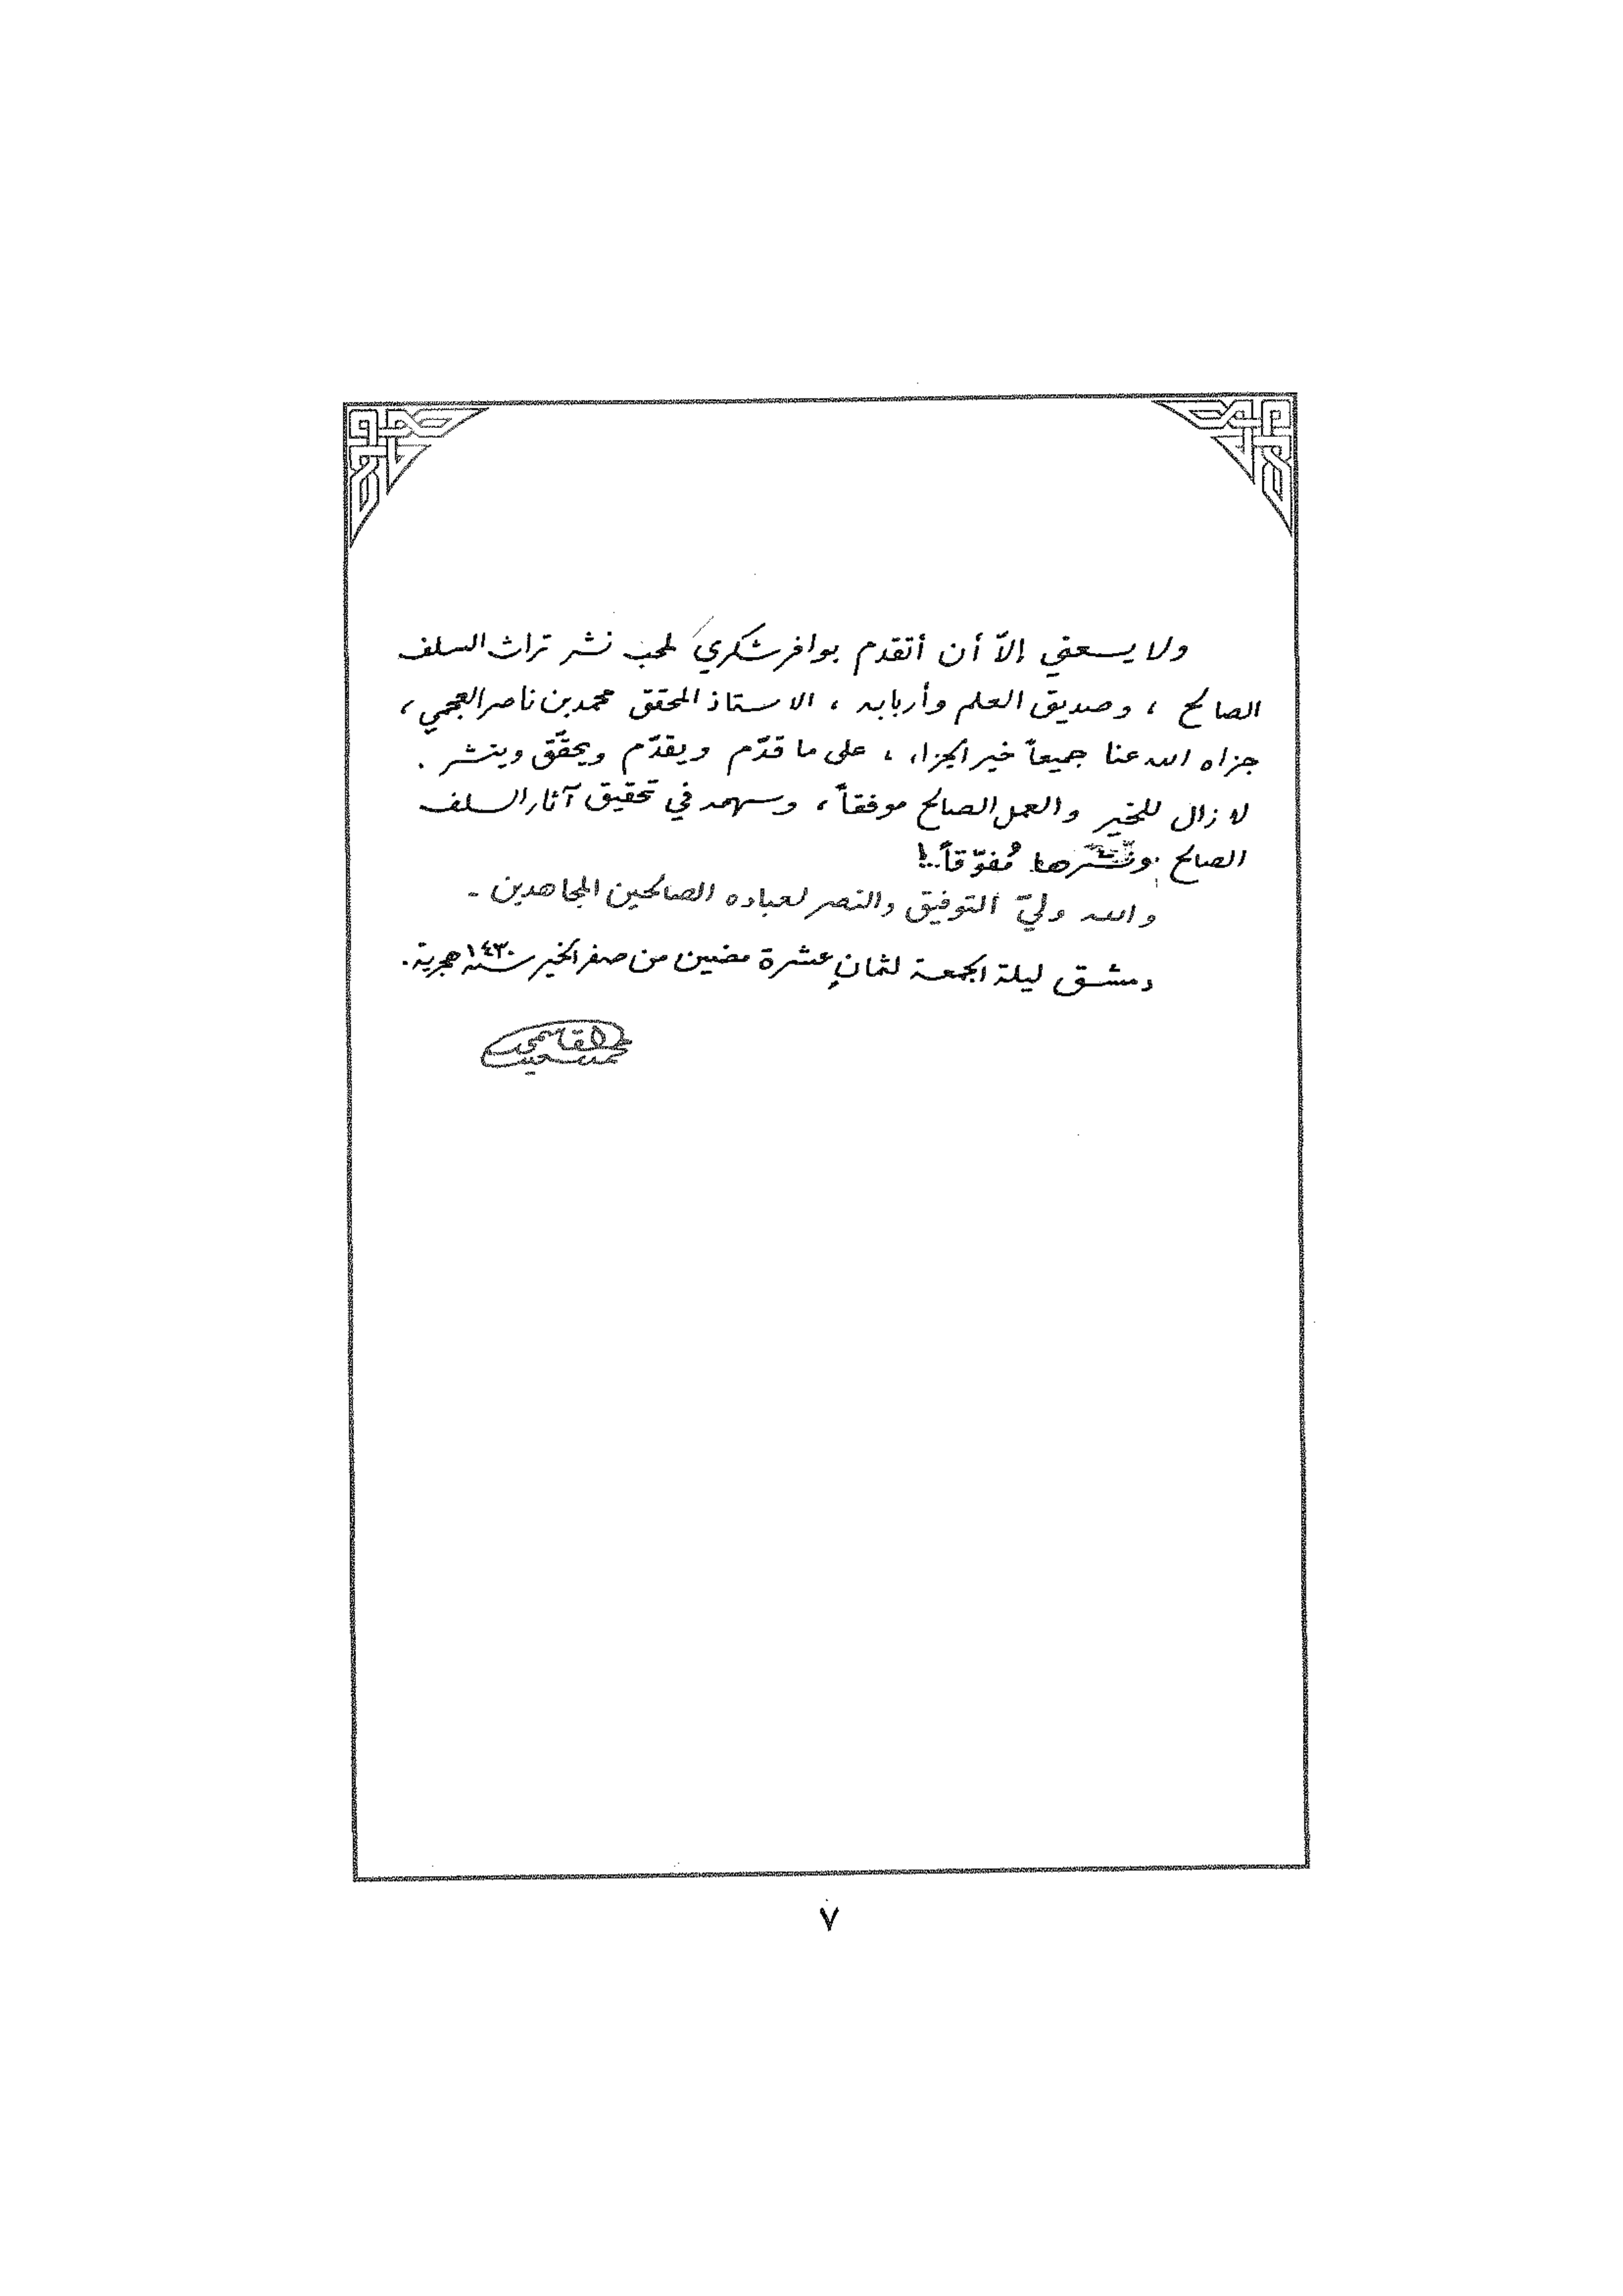 ولا يسعني إلاّ أن أتقدم بوافر شكري لمحب نشر تراث السلف
الصالح ، وصديق العلم وأربابه ، الاستاذ المحقق محمد بن ناصر العجمي ،
جزاه الله عنا جميعاً خير الجزاء ، على ما قدّم ويقدّم ويحقّق وينشر .
لا زال للخير والعمل الصالح موفقاً ، وسهمه في تحقيق آثار السلف
الصالح ونشرها مُفوّقاً..!
والله وليّ التوفيق والنصر لعباده الصالحين المجاهدين -
دمشق ليلة الجمعة لثمانٍ عشرة مضين من صفر الخير سنة ١٤٣٠ هجرية.
محمد سعيد القاسمي
٧